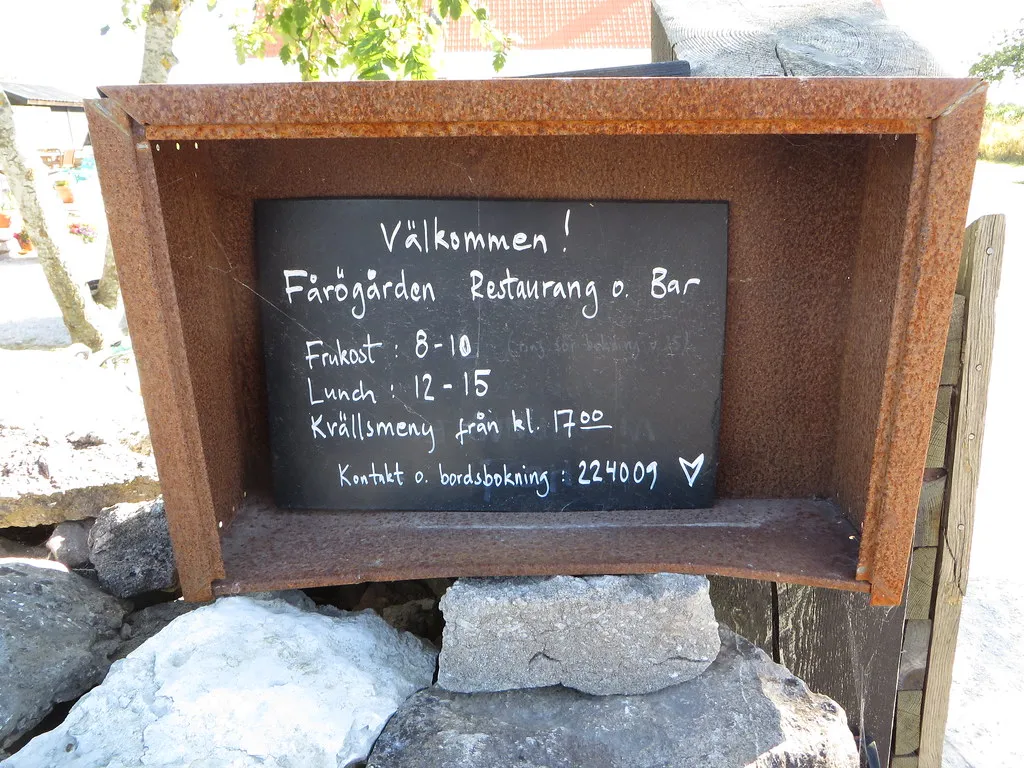 Välkommen!
Fårögården Restaurang o. Bar
Frukost : 8-10
Lunch : 12-15
Krällsmeny från kl. 17⁰⁰
Kontakt o. bordsbokning : 224009